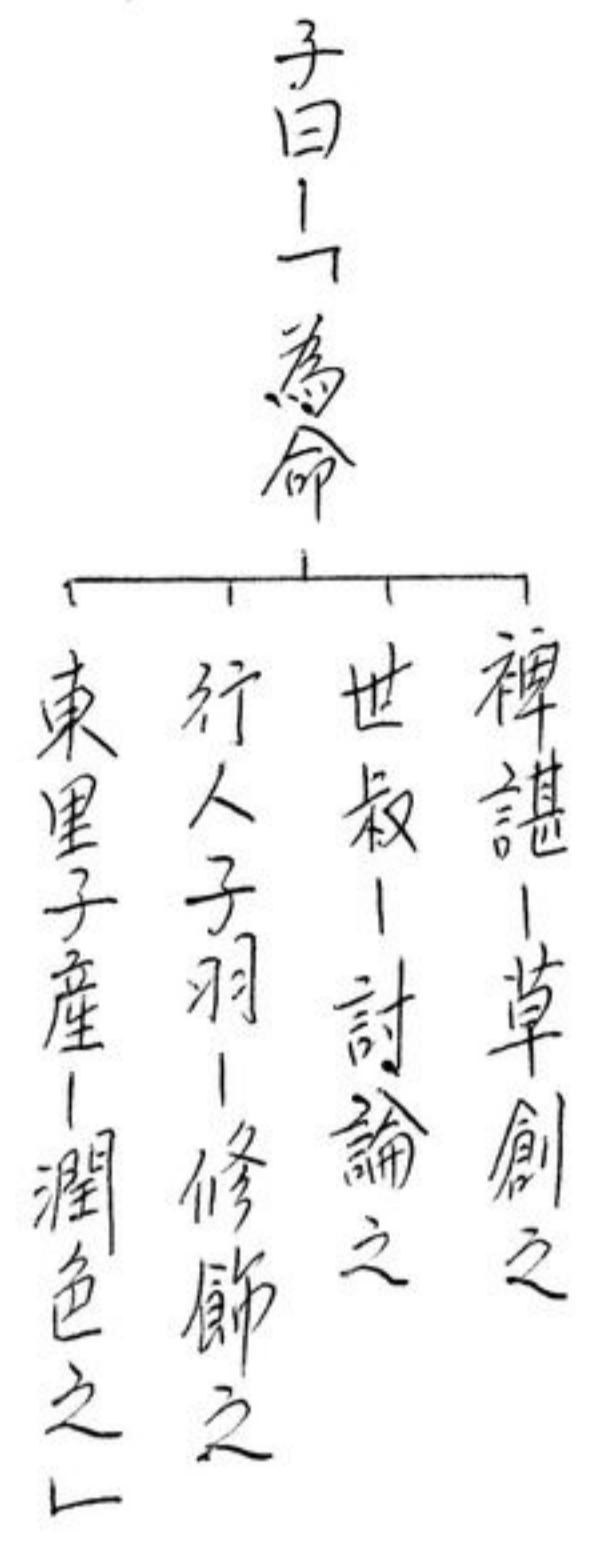 子曰-「為命
裨諶-草創之
世叔-討論之
行人子羽-修飾之
東里子產-潤色之」